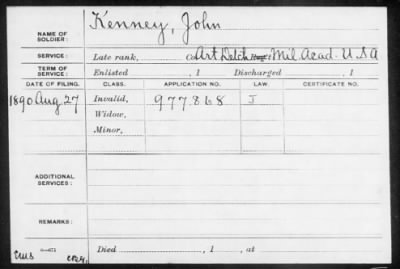 NAME OF SOLDIER: Kenney, John
SERVICE: Late rank, Co. Art Detch Reg't Mil Acad. U.S.A
TERM OF SERVICE: Enlisted , 1 Discharged , 1
DATE OF FILING. CLASS. APPLICATION NO. LAW. CERTIFICATE NO.
1890 Aug 27 Invalid, 977868 J
Widow,
Minor,
ADDITIONAL SERVICES:
REMARKS:
Died , 1 , at